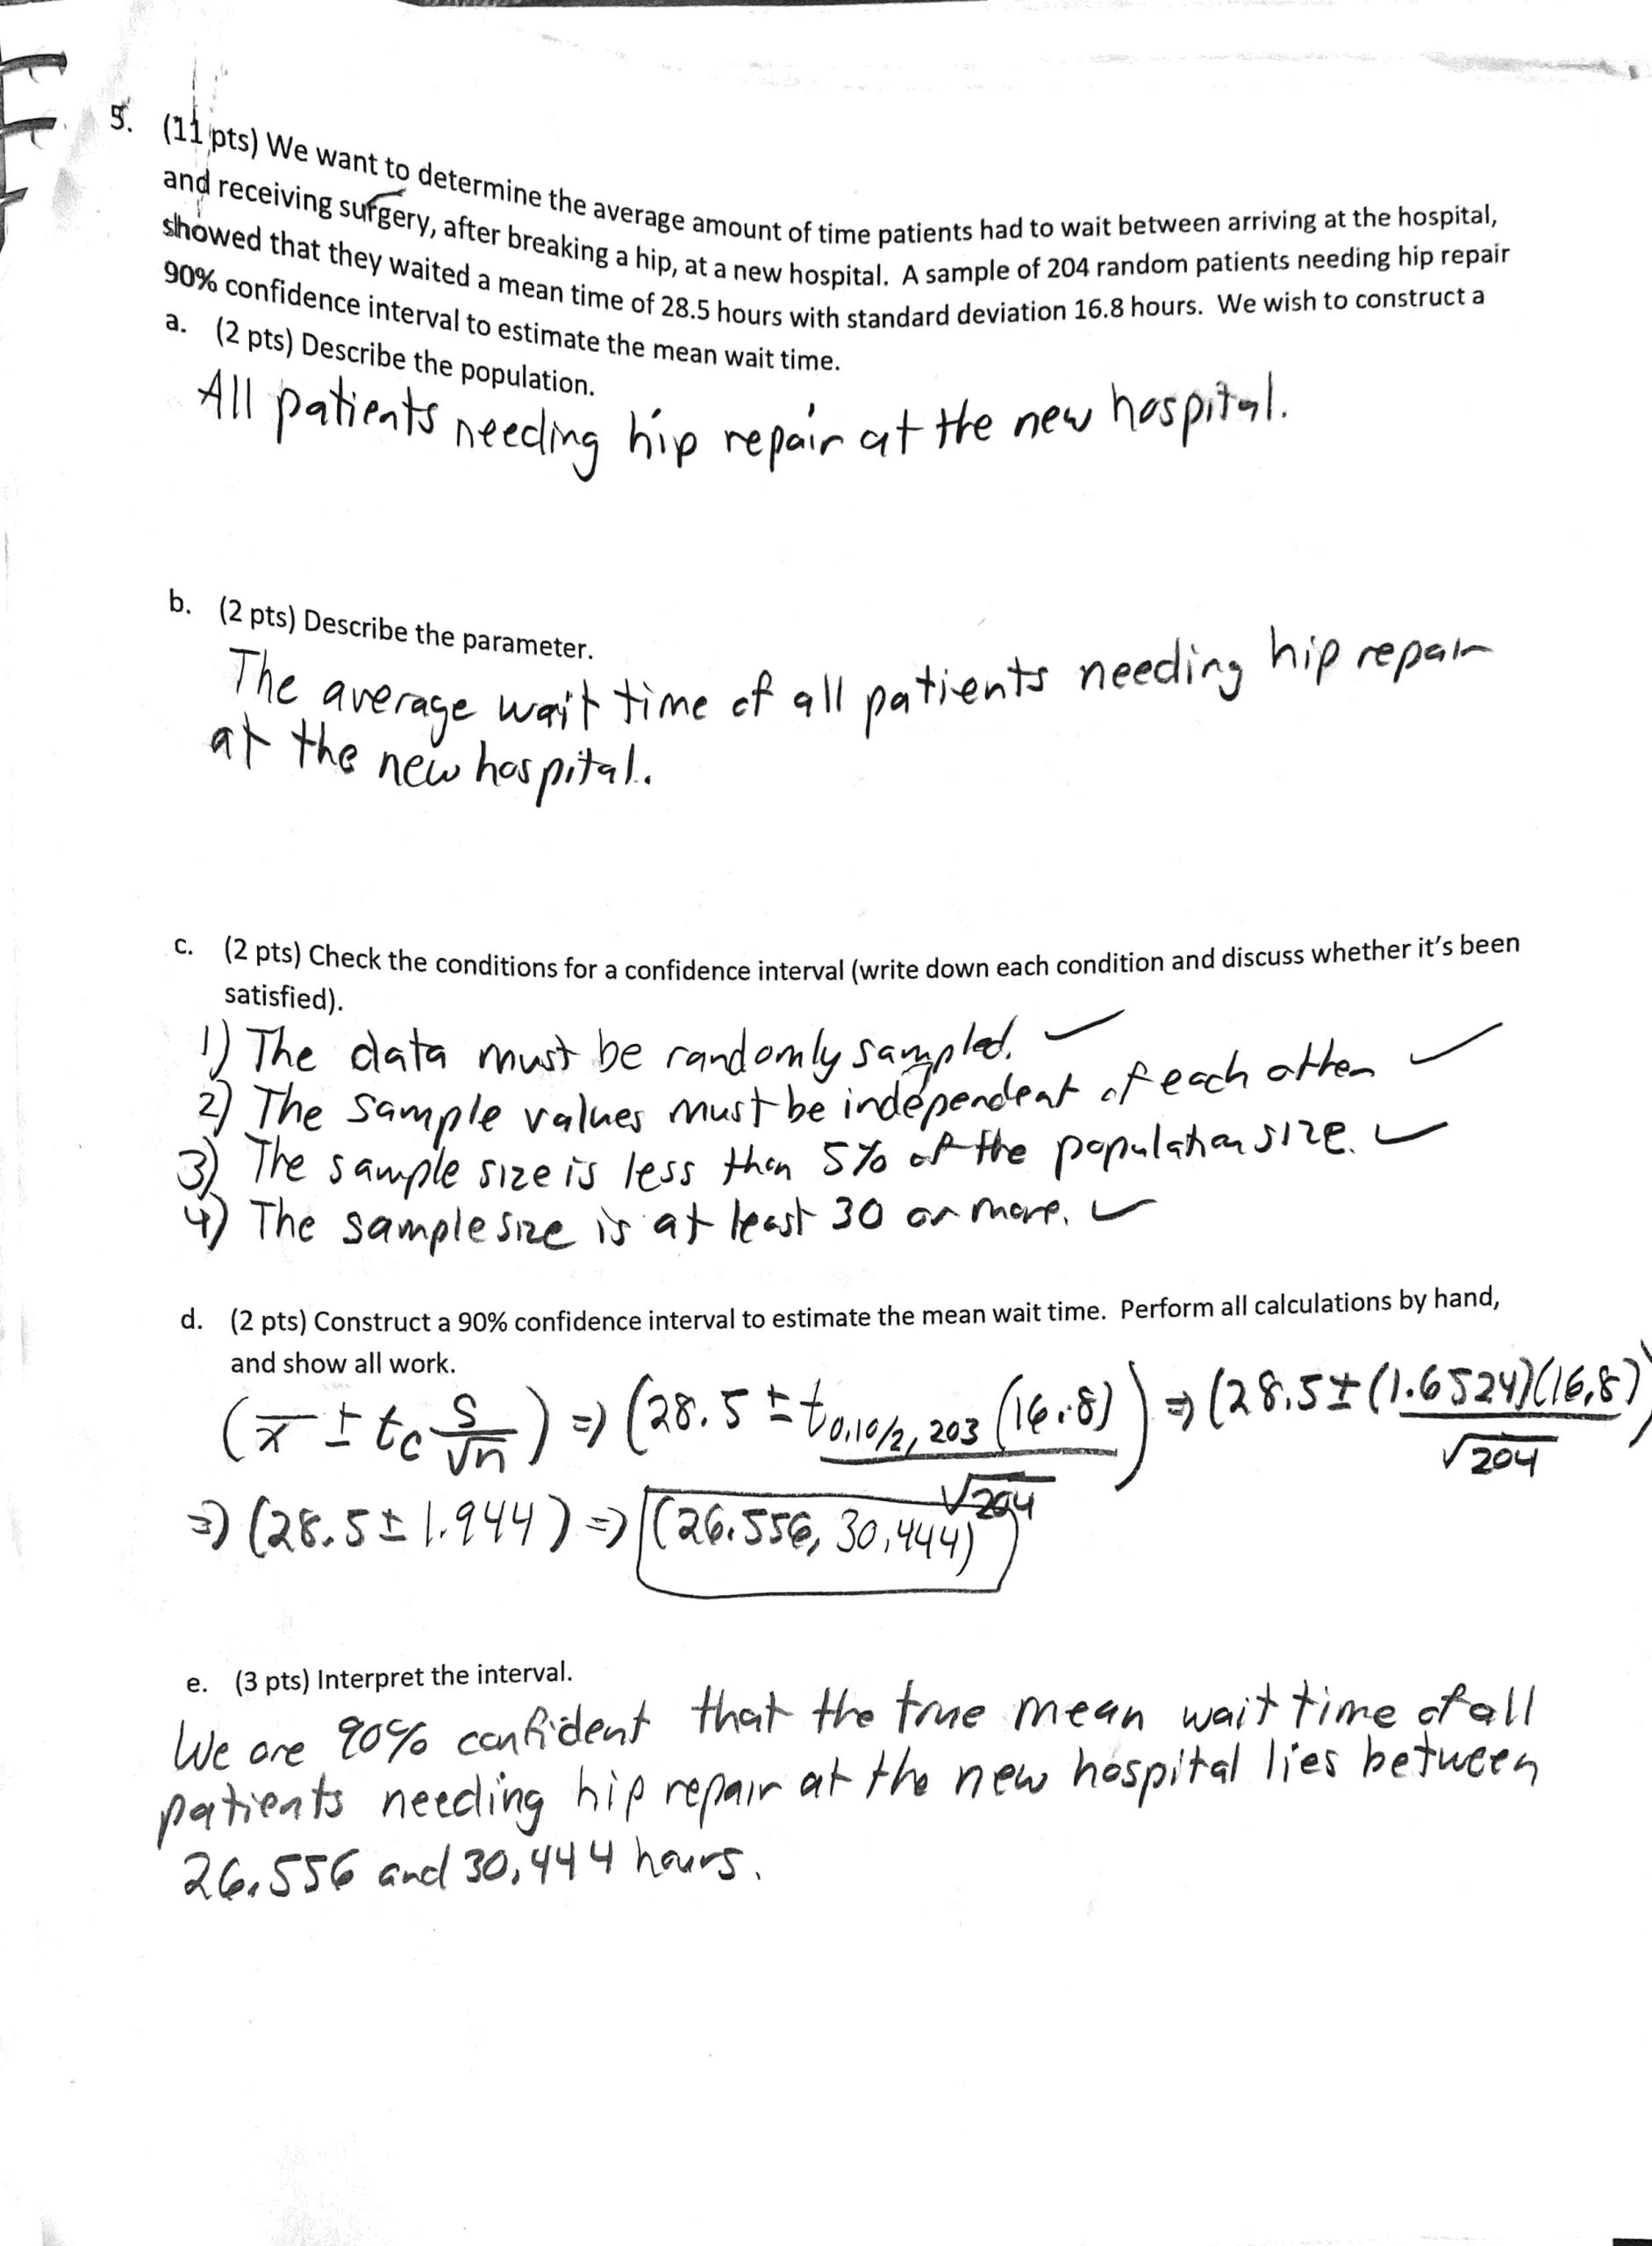 5. (11 pts) We want to determine the average amount of time patients had to wait between arriving at the hospital,
and receiving surgery, after breaking a hip, at a new hospital. A sample of 204 random patients needing hip repair
showed that they waited a mean time of 28.5 hours with standard deviation 16.8 hours. We wish to construct a
90% confidence interval to estimate the mean wait time.
a. (2 pts) Describe the population.
All patients needing hip repair at the new hospital.
b. (2 pts) Describe the parameter.
The average wait time of all patients needing hip repair
at the new hospital.
c. (2 pts) Check the conditions for a confidence interval (write down each condition and discuss whether it's been
satisfied).
1) The data must be randomly sampled. ✓
2) The sample values must be independent of each other ✓
3) The sample size is less than 5% of the population size. ✓
4) The sample size is at least 30 or more. ✓
d. (2 pts) Construct a 90% confidence interval to estimate the mean wait time. Perform all calculations by hand,
and show all work.
(x̄ ± tc s/√n) ⇒ (28.5 ± t0.10/2, 203 (16.8)/√204) ⇒ (28.5 ± (1.6524)(16.8)/√204)
⇒ (28.5 ± 1.944) ⇒ (26.556, 30.444)
e. (3 pts) Interpret the interval.
We are 90% confident that the true mean wait time of all
patients needing hip repair at the new hospital lies between
26.556 and 30.444 hours.